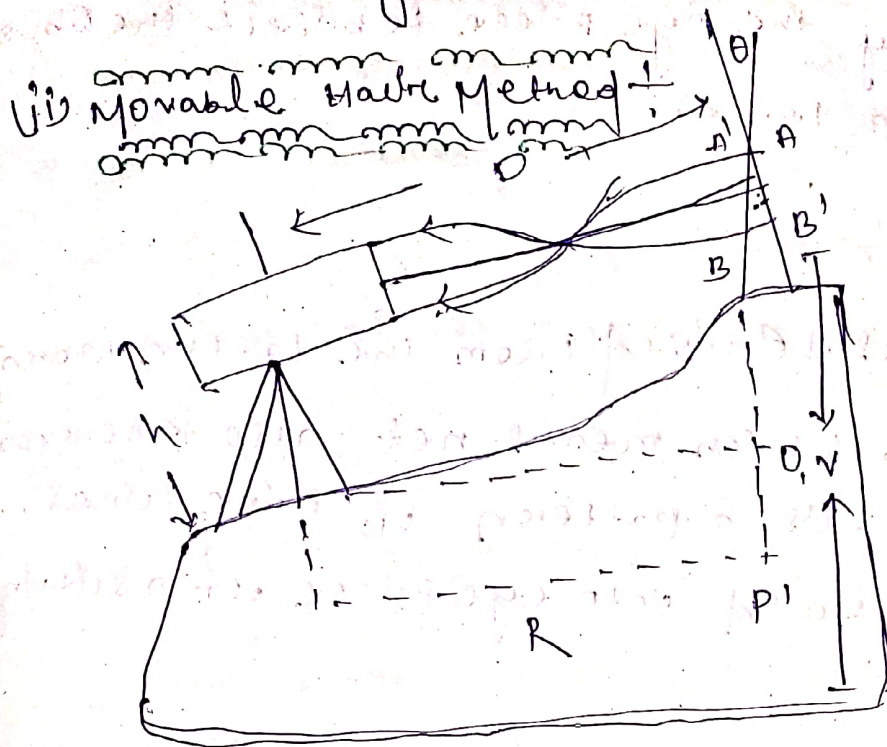 ii) Movable Hair Method :-
θ
D
A' A
B'
B
h
O, V
P'
R